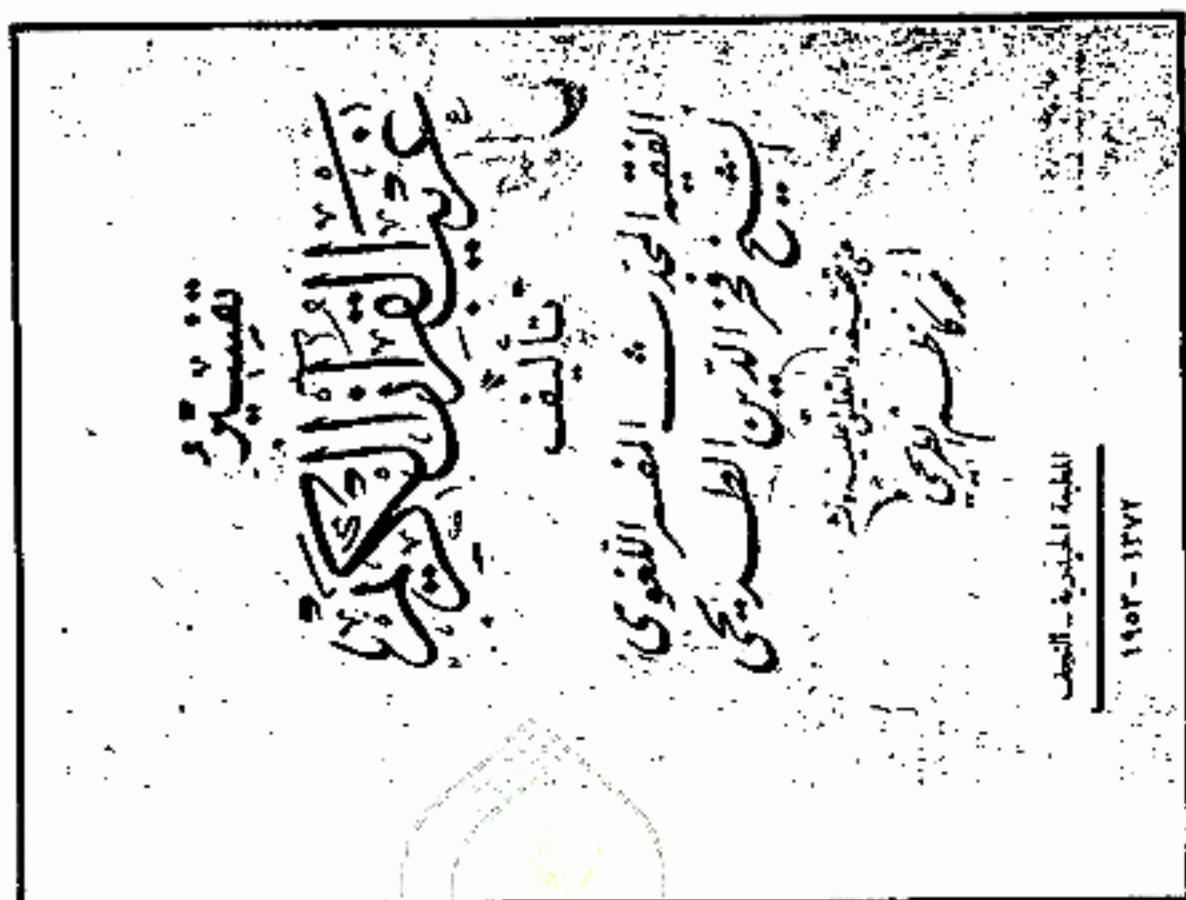 تفسير
غريب القرآن الكريم
تأليف
الفقيه المحدث المفسر اللغوي
الشيخ فخر الدين الطريحي
عني بتحقيقه والتعليق عليه ونشره
محمد كاظم الطريحي
المطبعة الحيدرية – النجف
١٣٧٢ – ١٩٥٣